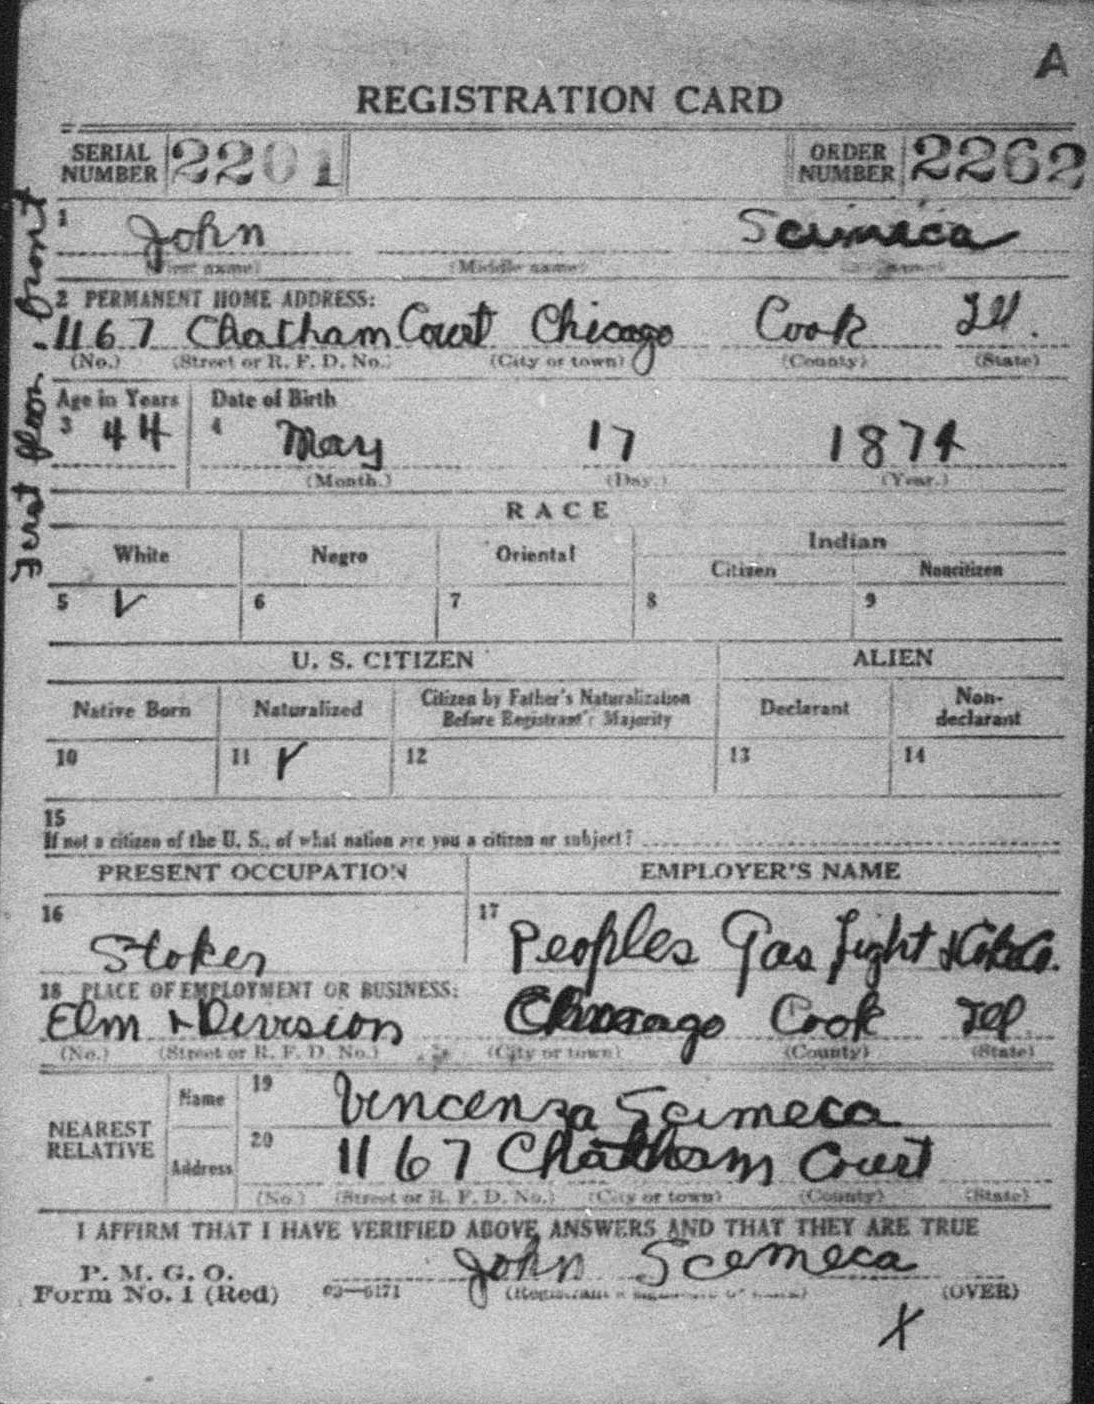 A
REGISTRATION CARD
SERIAL NUMBER 2201 ORDER NUMBER 2262
First floor front
1 John Scimeca
(First name) (Middle name) (Last name)
2 PERMANENT HOME ADDRESS:
1167 Chatham Court Chicago Cook Ill.
(No.) (Street or R. F. D. No.) (City or town) (County) (State)
Age in Years Date of Birth
3 44 4 May 17 1874
(Month.) (Day.) (Year.)
RACE
White Negro Oriental Indian
Citizen Noncitizen
5 6 7 8 9
U. S. CITIZEN ALIEN
Native Born Naturalized Citizen by Father's Naturalization Before Registrant's Majority Declarant Non-declarant
10 11 12 13 14
15
If not a citizen of the U. S., of what nation are you a citizen or subject?
PRESENT OCCUPATION EMPLOYER'S NAME
16 Stoker 17 Peoples Gas Light & Coke Co.
18 PLACE OF EMPLOYMENT OR BUSINESS:
Elm + Division Chicago Cook Ill
(No.) (Street or R. F. D. No.) (City or town) (County) (State)
NEAREST RELATIVE Name 19 Vincenza Scimeca
Address 20 1167 Chatham Court
(No.) (Street or R. F. D. No.) (City or town) (County) (State)
I AFFIRM THAT I HAVE VERIFIED ABOVE ANSWERS AND THAT THEY ARE TRUE
P. M. G. O.
Form No. 1 (Red) 03—6171 John Scemeca
(Registrant's signature or mark) (OVER)
X